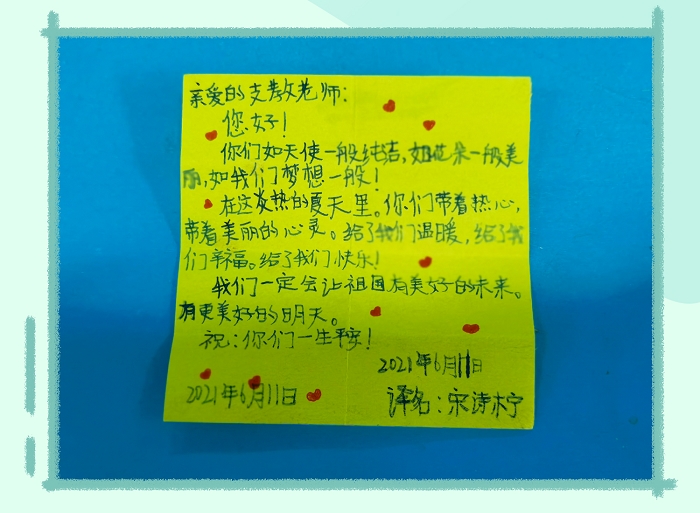 亲爱的支教老师：
您好！
你们如天使一般纯洁，如花朵一般美
丽，如我们梦想一般！
在这炎热的夏天里。你们带着热心，
带着美丽的心灵。给了我们温暖，给了我
们幸福。给了我们快乐！
我们一定会让祖国有美好的未来。
有更美好的明天。
祝：你们一生平安！
2021年6月11日
2021年6月11日
译名：宋诗柠